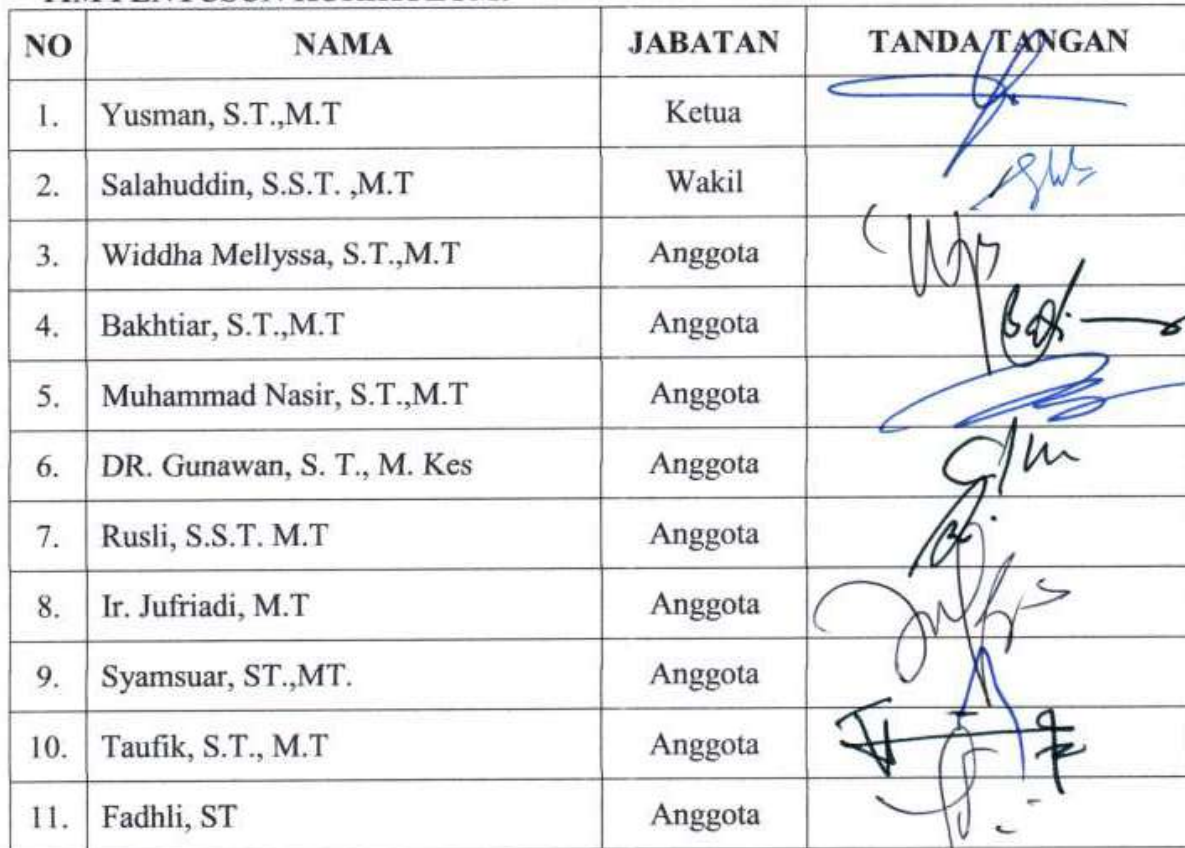 NO NAMA JABATAN TANDA TANGAN
1. Yusman, S.T.,M.T Ketua
2. Salahuddin, S.S.T. ,M.T Wakil
3. Widdha Mellyssa, S.T.,M.T Anggota
4. Bakhtiar, S.T.,M.T Anggota
5. Muhammad Nasir, S.T.,M.T Anggota
6. DR. Gunawan, S. T., M. Kes Anggota
7. Rusli, S.S.T. M.T Anggota
8. Ir. Jufriadi, M.T Anggota
9. Syamsuar, ST.,MT. Anggota
10. Taufik, S.T., M.T Anggota
11. Fadhli, ST Anggota